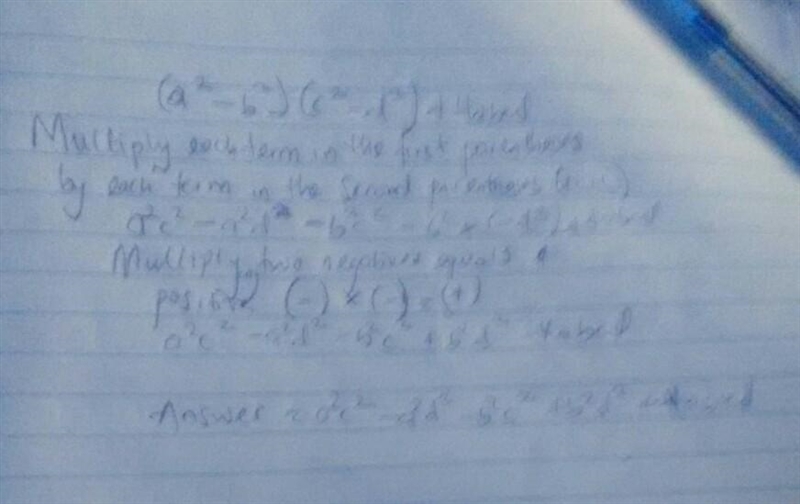 (a² - b²)(c² - d²) + 4abcd
Multiply each term in the first parentheses
by each term in the second parentheses
a²c² - a²d² - b²c² - b² × (-d²) + 4abcd
Multiply two negatives equals a
positive (-) × (-) = (+)
a²c² - a²d² - b²c² + b²d² 4abcd
Answer = a²c² - a²d² - b²c² + b²d² + 4abcd